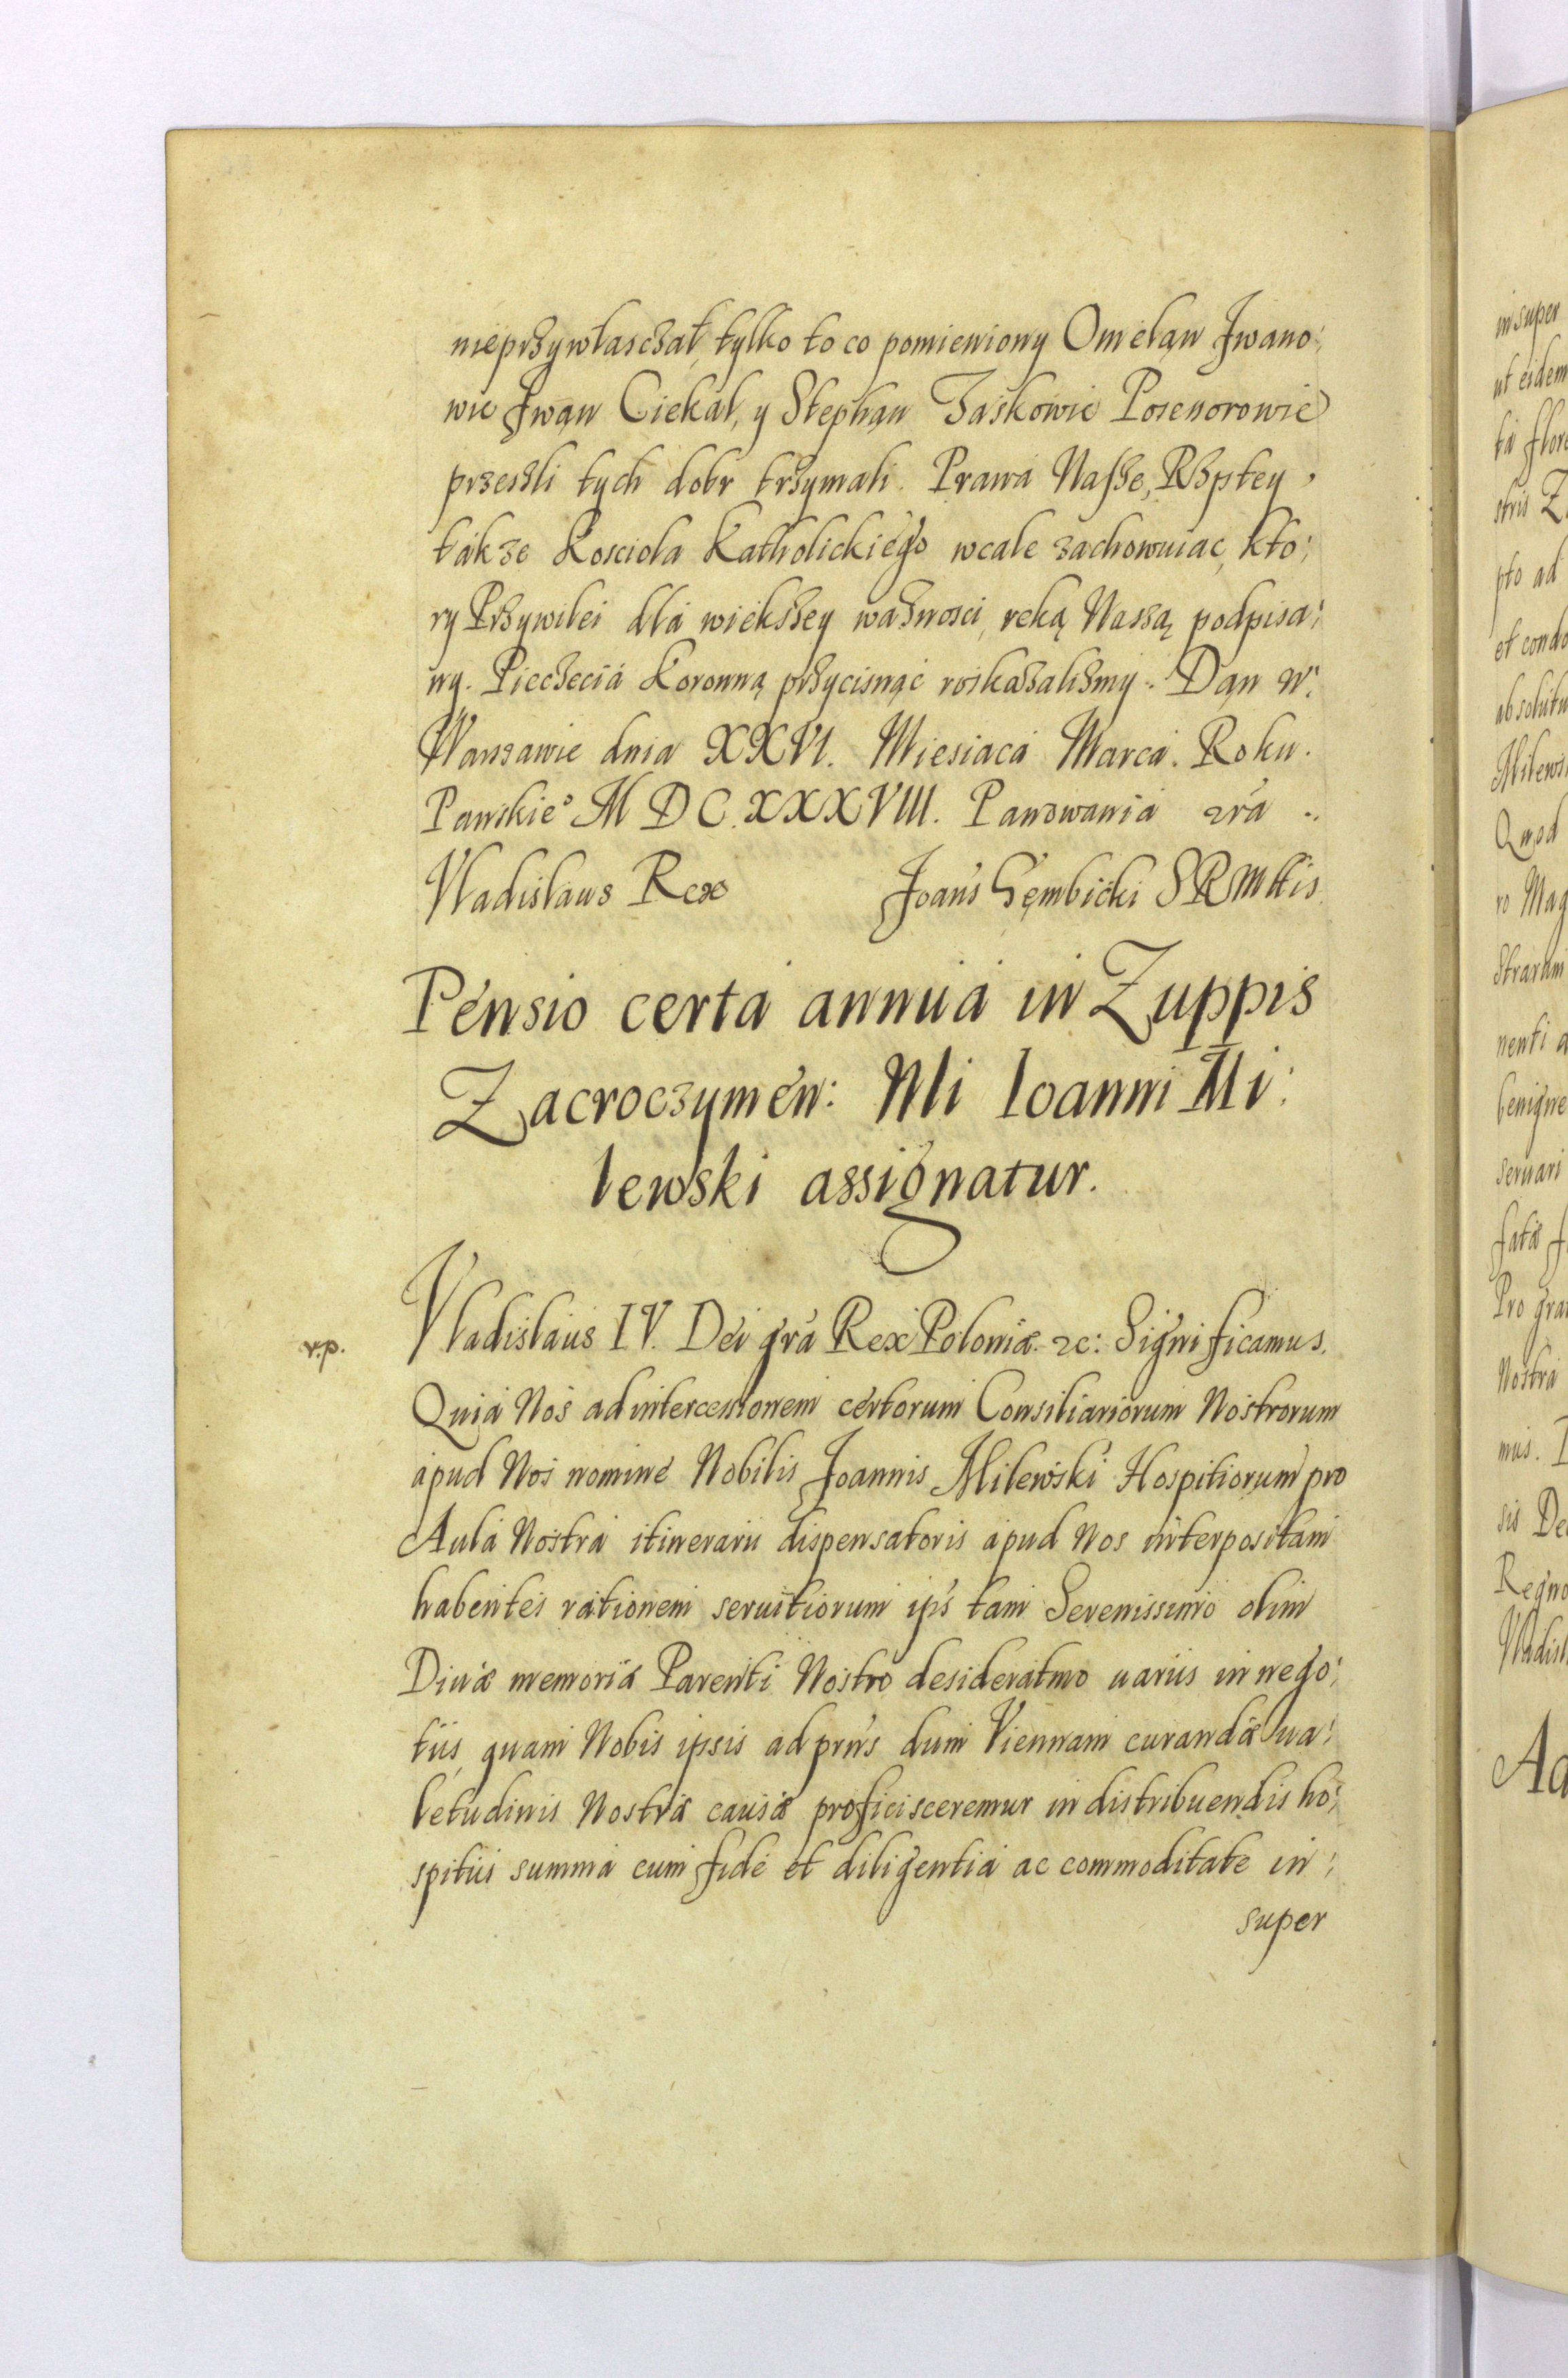 nieprzywłasczał, tylko to co pomieniony Omelan Jwano:
wic Jwan Ciekal, y Stephan Jaskowic Posenorowie
przeszli tych dobr trzymali. Prawa Nasze, Rzptey,
takze Kosciola Katholickiego wcale zachowuiac, kto:
ry Przywilei dla wiekszey waznosci, reką Naszą podpisa:
ny. Pieczecia Koronną przycisnąc roskazalizmy. Dan w:
Warszawie dnia XXVI. Miesiaca Marca. Roku.
Panskieº M D C. XXXVIII. Panowania &ra ..
Vladislaus Rex Joan's Gembicki SRMttis
Pensio certa annua in Zuppis
Zacroczymen: Nli Ioanni Mi:
lewski assignatur.
v.p.
Vladislaus IV. Dei gra Rex Poloniæ. &c: Significamus.
Quia Nos ad intercessionem certorum Consiliariorum Nostrorum
apud Nos nomine Nobilis Joannis Milewski Hospitiorum pro
Aula Nostra itinerarii dispensatoris apud Nos interpositam
habentes rationem seruitiorum ips tam Serenissimo olim
Diuæ memoriæ Parenti Nostro desideratmo uariis in nego:
tiis, quam Nobis ipsis ad prns dum Viennam curandæ ua:
letudinis Nostræ causa proficisceremur in distribuendis ho:
spitiis summa cum fide et diligentia ac commoditate in:
super
insuper
ut eidem
pto ad
Quod
nenti
benigne
seruari
Nostra
mus.